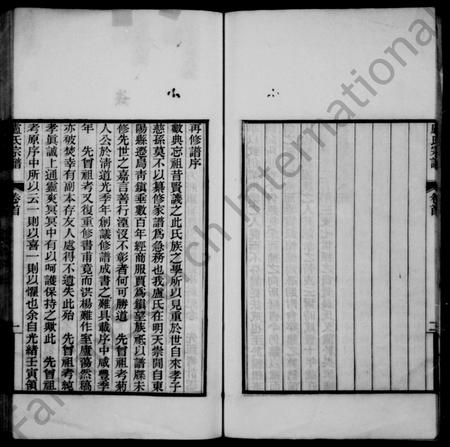 再修譜序
數典忘祖昔賢譏之此氏族之學所以見重於世自來孝子
慈孫莫不以纂修家譜為急務也我盧氏在明天崇間自東
陽縣遷烏青鎮垂數百年經商服賈爲鎮望族祗以譜牒未
修先世之嘉言善行湮沒不彰者何可勝道 先曾祖考菊
人公於清道光季年創議修譜成書之難具載序中咸豐季
年 先曾祖考又復重修書甫竟而洪楊難作室廬蕩然稿
亦被焚幸有副本存友人處得不遺失此殆 先曾祖考純
孝眞誠上通靈爽冥冥中有以呵護保持之歟此 先曾祖
考原序中所以云一則以喜一則以懼也余自光緒壬寅領
盧氏宗譜
卷首
一
盧氏宗譜
卷首
二
FamilySearch International